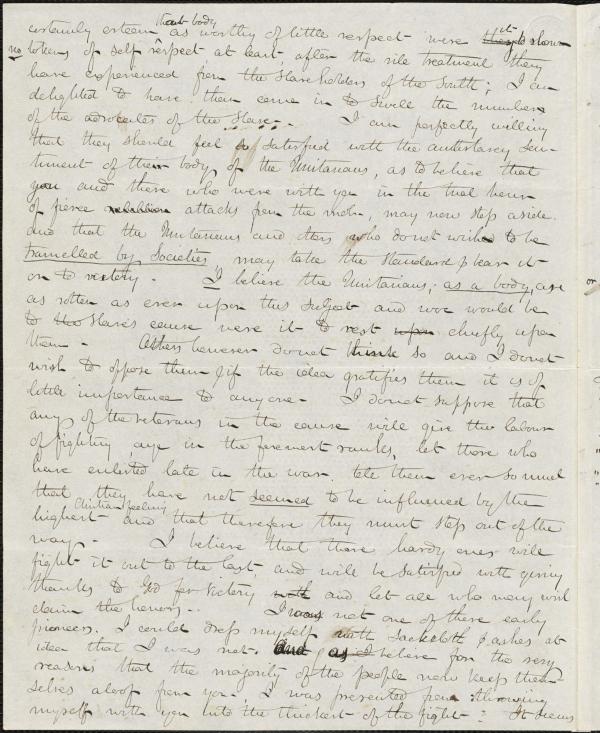 that body
certainly esteem as worthy of little respect were it they to shown
no tokens of self respect at least, after the vile treatment they
have experienced from the Slaveholders of the South; I am
delighted to have them come in to swell the numbers
of the advocates of the Slave - I am perfectly willing
that they should feel so satisfied with the antislavery sen-
timent of their body, of the Unitarians, as to believe that
you and those who were with you in the trial hour
of fierce attacks from the mob, may now step aside
and that the Unitarians and others who do not wish to be
tramelled by Societies may take the standard & bear it
on to victory. I believe the Unitarians, as a body, are
as rotten as ever upon this subject and woe would be
to the Slave's cause were it to rest upon chiefly upon
them - Others however do not think so and I do not
wish to oppose them for if the idea gratifies them it is of
little importance to any one - I do not suppose that
any of the veterans in the cause will give the labour
of fighting, aye in the foremost ranks, let those who
have enlisted late in the war tell them ever so much
that they have not seemed to be influenced by the
Christian feeling
highest and that therefore they must step out of the
way - I believe that those hardy ones will
fight it out to the last, and will be satisfied with giving
thanks to God for victory with and let all who may wish
claim the honors - I was not one of these early
pioneers. I could dress myself with Sackcloth & ashes at
idea that I was not. And as I believe for the very
reasons that the majority of the people now keep them-
selves aloof from you, I was prevented from throwing
myself with you into the thickest of the fight - It seems
or